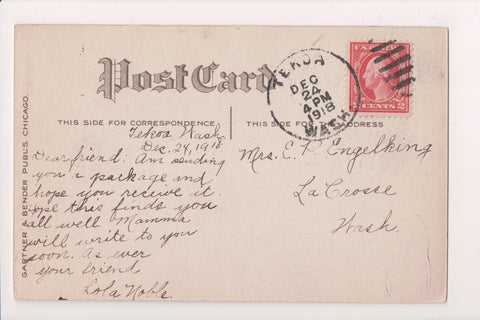 Post Card
THIS SIDE FOR CORRESPONDENCE
THIS SIDE FOR ADDRESS
GARTNER & BENDER PUBL'S. CHICAGO.
TEKOA
DEC
24
4 PM
1918
WASH
2 CENTS 2
Tekoa Wash.
Dec. 24, 1918.
Dear friend: Am sending
you a package and
hope you receive it.
Hope this finds you
all well. Mamma
will write to you
soon. As ever
your friend
Lola Noble.
Mrs. E. P. Engelking
La Crosse
Wash.